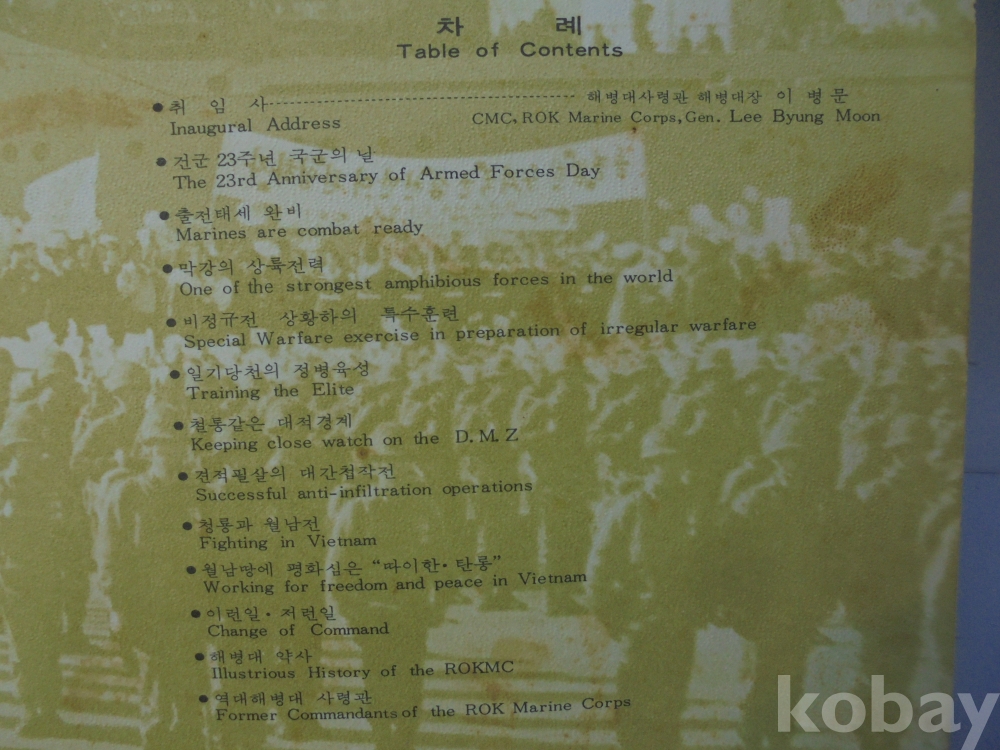 차 례
Table of Contents
●취 임 사 해병대사령관 해병대장 이 병 문
Inaugural Address CMC, ROK Marine Corps, Gen. Lee Byung Moon
●건군 23주년 국군의 날
The 23rd Anniversary of Armed Forces Day
●출전태세 완비
Marines are combat ready
●막강의 상륙전력
One of the strongest amphibious forces in the world
●비정규전 상황하의 특수훈련
Special Warfare exercise in preparation of irregular warfare
●일기당천의 정병육성
Training the Elite
●철통같은 대적경계
Keeping close watch on the D. M. Z
●견적필살의 대간첩작전
Successful anti-infiltration operations
●청룡과 월남전
Fighting in Vietnam
●월남땅에 평화심은 “따이한·탄룽”
Working for freedom and peace in Vietnam
●이런일·저런일
Change of Command
●해병대 약사
Illustrious History of the ROKMC
●역대해병대 사령관
Former Commandants of the ROK Marine Corps
kobay